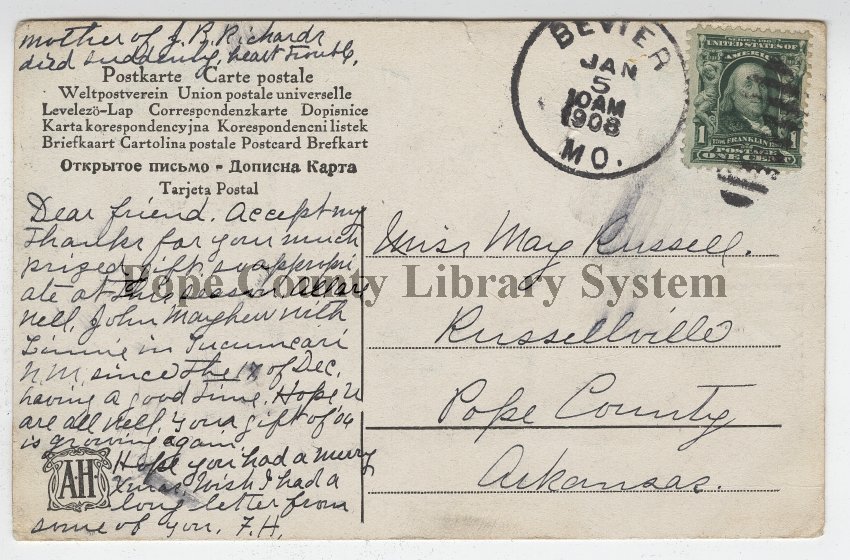 mother of J. R. Richards
died suddenly, heart trouble,
Postkarte Carte postale
Weltpostverein Union postale universelle
Levelező-Lap Correspondenzkarte Dopisnice
Karta korespondencyjna Korespondencni listek
Briefkaart Cartolina postale Postcard Brefkart
Открытое письмо - Дописна Карта
Tarjeta Postal
BEVIER
JAN
5
10AM
1908
MO.
SERIES 1902
UNITED STATES OF
AMERICA
1 FRANKLIN
POSTAGE
ONE CENT
Dear friend. Accept my
thanks for your much
prized gift, so appropri
ate at this season. All are
well. John Mayhew with
Linnie in Tucumcari
N.M. since The 17 of Dec.
having a good time. Hope U
are all well, your gift of '06
is growing again.
Hope you had a merry
Xmas. Wish I had a
long letter from
some of you. F.H.
AH
Miss May Russell.
Russellville
Pope County
Arkansas.
Pope County Library System